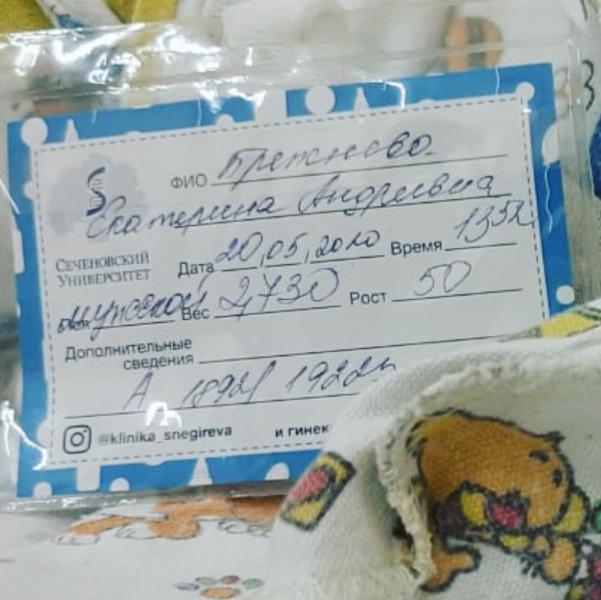 ФИО Брежнева
Екатерина Андреевна
Сеченовский
Университет
Дата 20,05,2020 Время 13 52
мужской Вес 2,730 Рост 50
Дополнительные
сведения
А 1892/ 1922
@klinika_snegireva и гинек